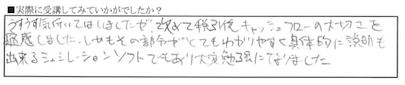 ■実際に受講してみていかがでしたか？
うすうす気付いてはいましたが、改めて税引後キャッシュフローの大切さを
痛感しました。しかもその部分がとてもわかりやすく具体的に説明も
出来るシュミレーションソフトでもあり大変勉強になりました